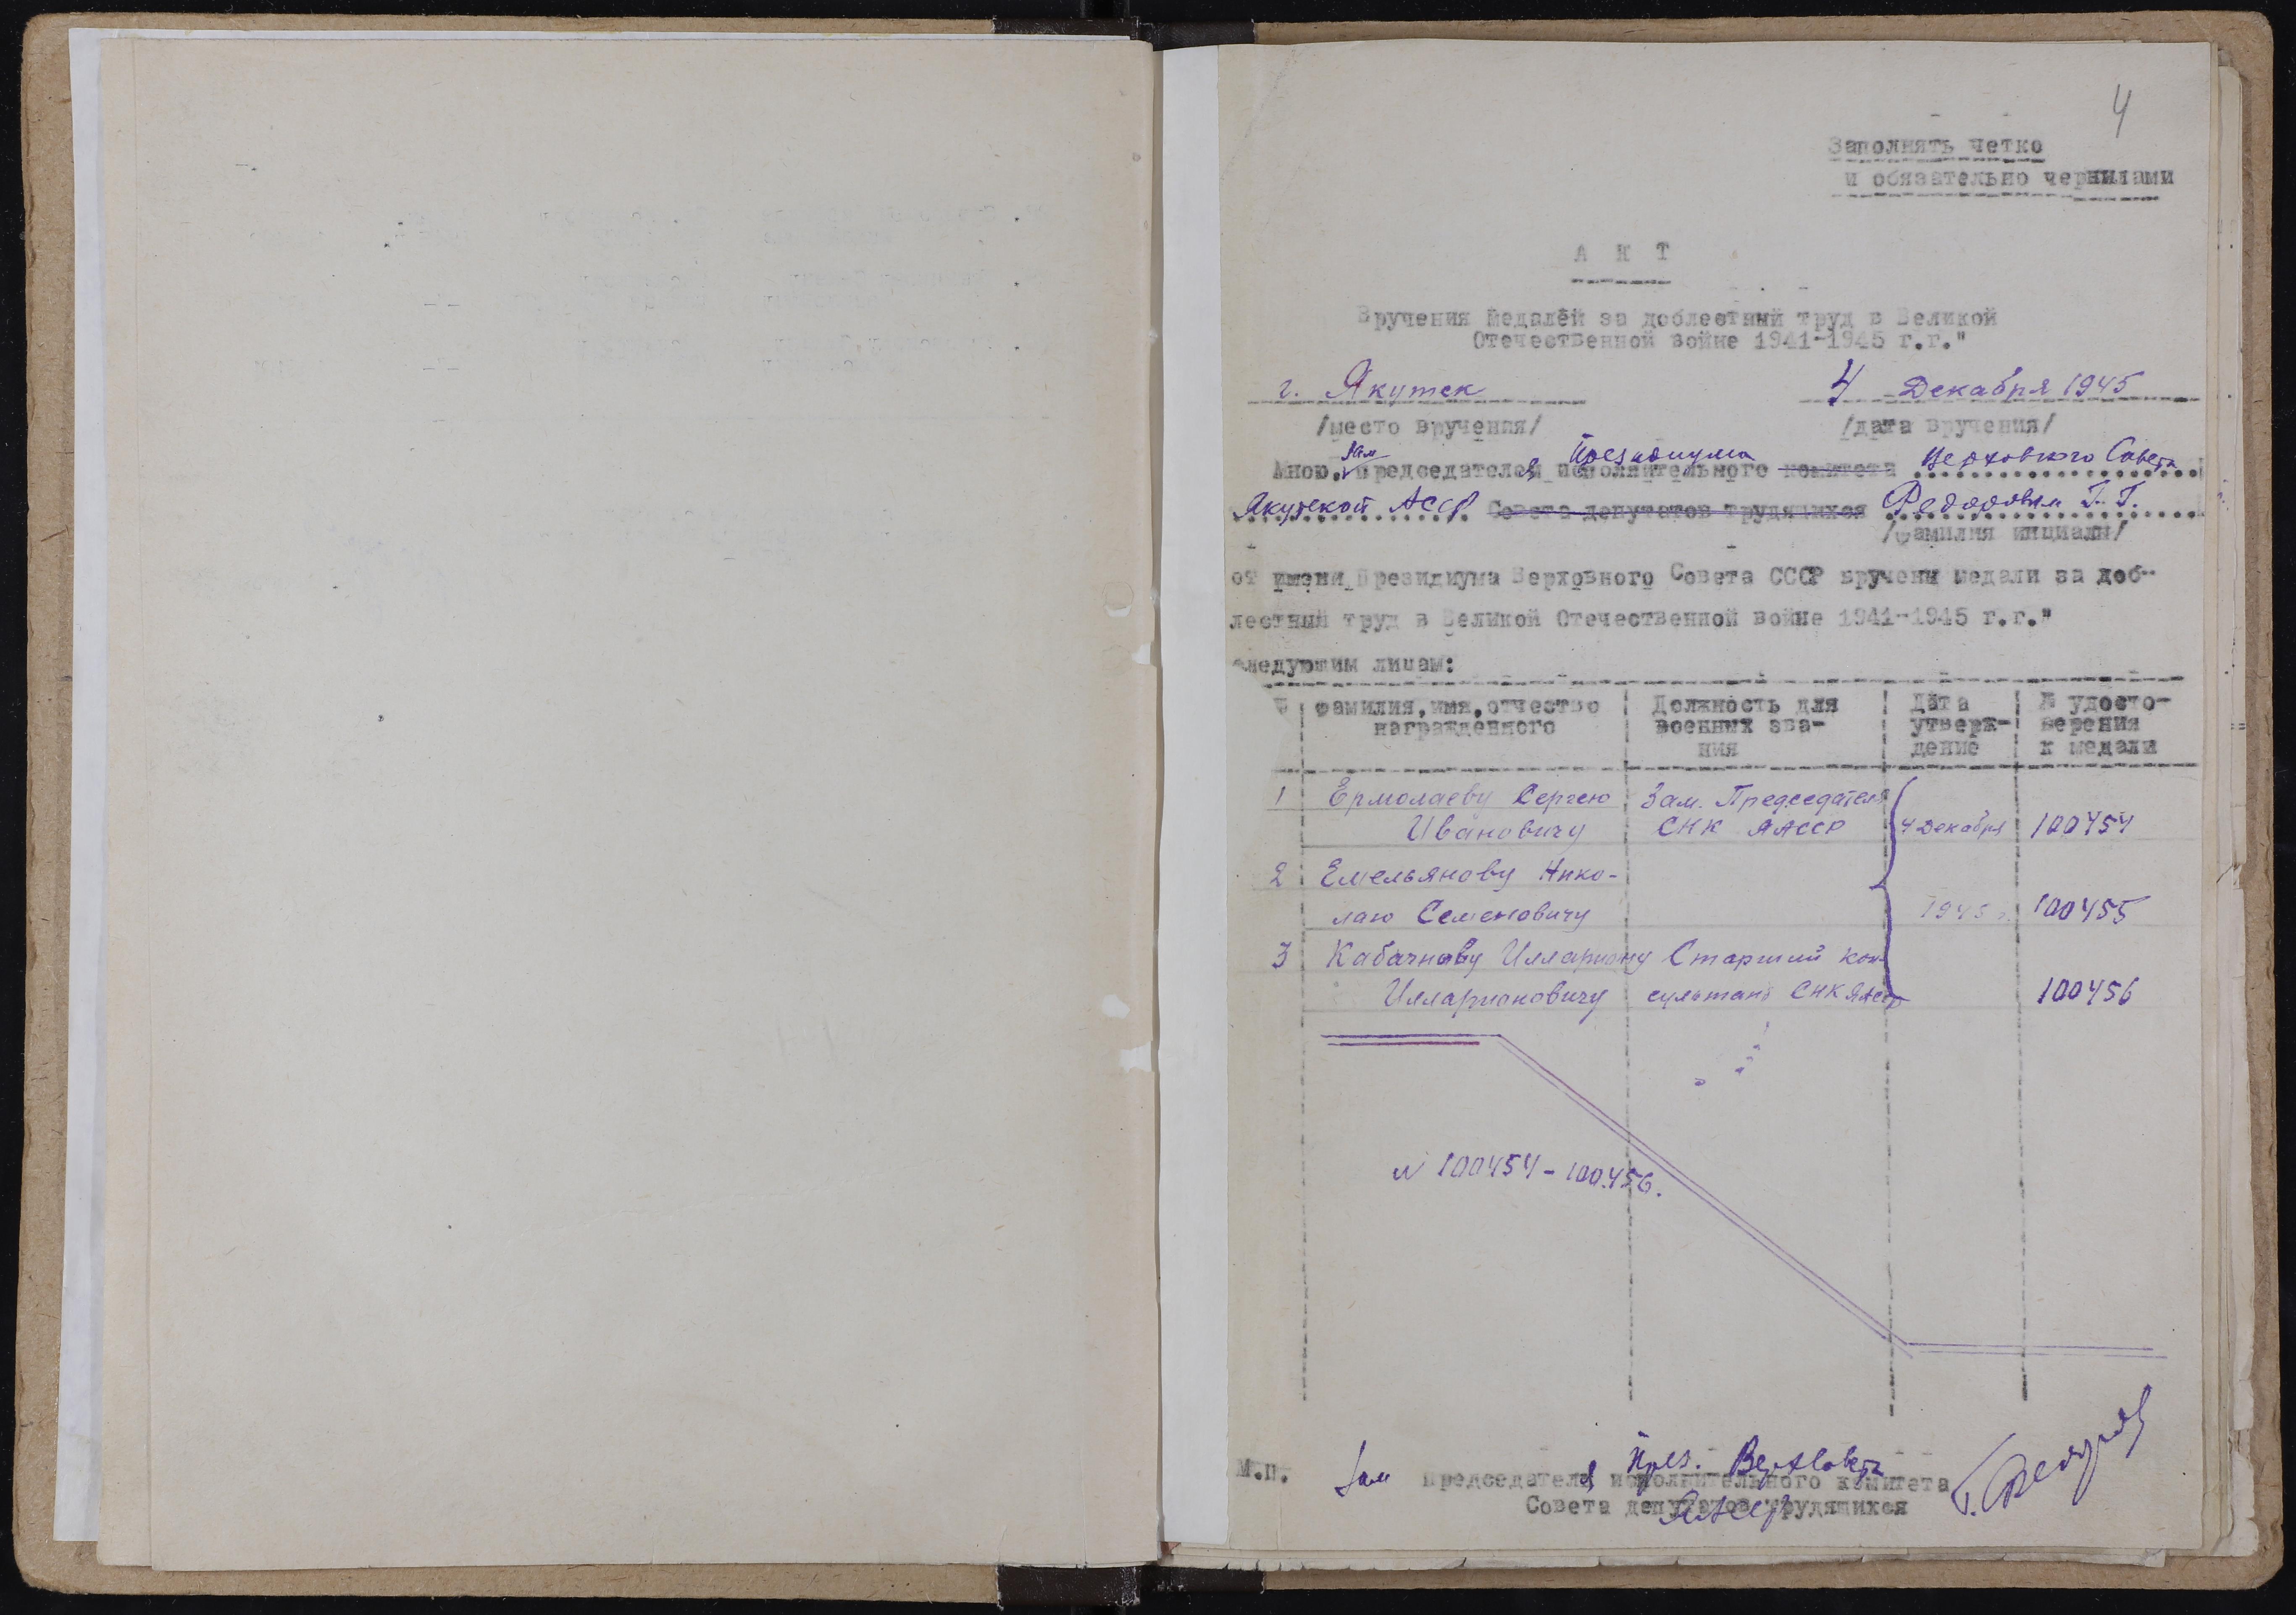 4
Заполнять четко
и обязательно чернилами
А К Т
Вручения медалей за доблестный труд в Великой
Отечественной войне 1941-1945 г.г."
г. Якутск 4 Декабря 1945
/место вручения/ /дата вручения/
зам Президиума Верховного Совета
Мною, председателем исполнительного комитета
Якутской АССР Совета депутатов трудящихся Федоровым Г. Г.
/фамилия инциалы/
от имени Президиума Верховного Совета СССР вручены медали за доб-
лестный труд в Великой Отечественной войне 1941-1945 г.г."
следующим лицам:
№ фамилия, имя, отчество Должность для Дата № удосто-
награжденного военных зва- утверж- верения
ния дение к медали
1 Ермолаеву Сергею Зам. Председателя
Ивановичу СНК ЯАССР 4 Декабря 100454
2 Емельянову Нико-
лаю Семеновичу 1945 г. 100455
3 Кабачнову Иллариону Старший кон-
Илларионовичу сультант СНК ЯАССР 100456
N 100454-100456.
през. Верхсовета
М.П. Зам Председателя исполнительного комитета
Совета депутатов трудящихся
ЯАССР
Г. Федоров